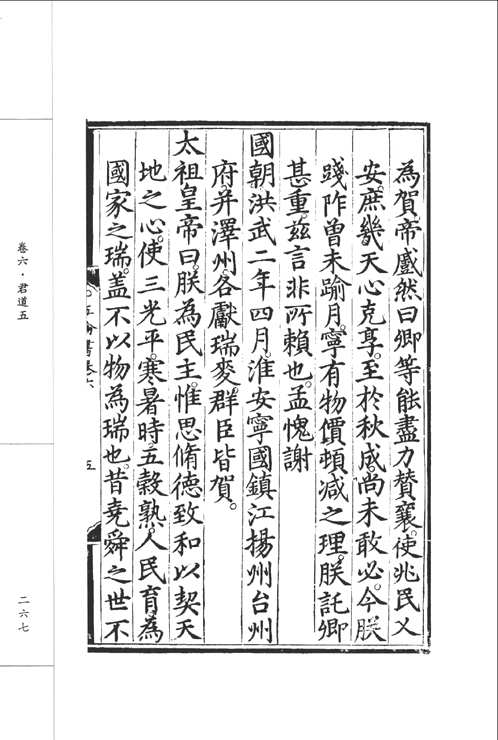 為賀。帝蹙然曰。卿等能盡力贊襄。使兆民乂
安。庶幾天心克享。至於秋成。尚未敢必。今朕
踐阼曾未踰月。寧有物價頓减之理。朕託卿
甚重。茲言非所賴也。孟愧謝
國朝洪武二年四月。淮安寧國鎮江揚州台州
府并澤州。各獻瑞麥。群臣皆賀。
太祖皇帝曰。朕為民主。惟思脩德致和以契天
地之心。使三光平。寒暑時。五穀熟。人民育。為
國家之瑞。盖不以物為瑞也。昔堯舜之世不
五倫書卷六
五
卷六·君道五
二六七